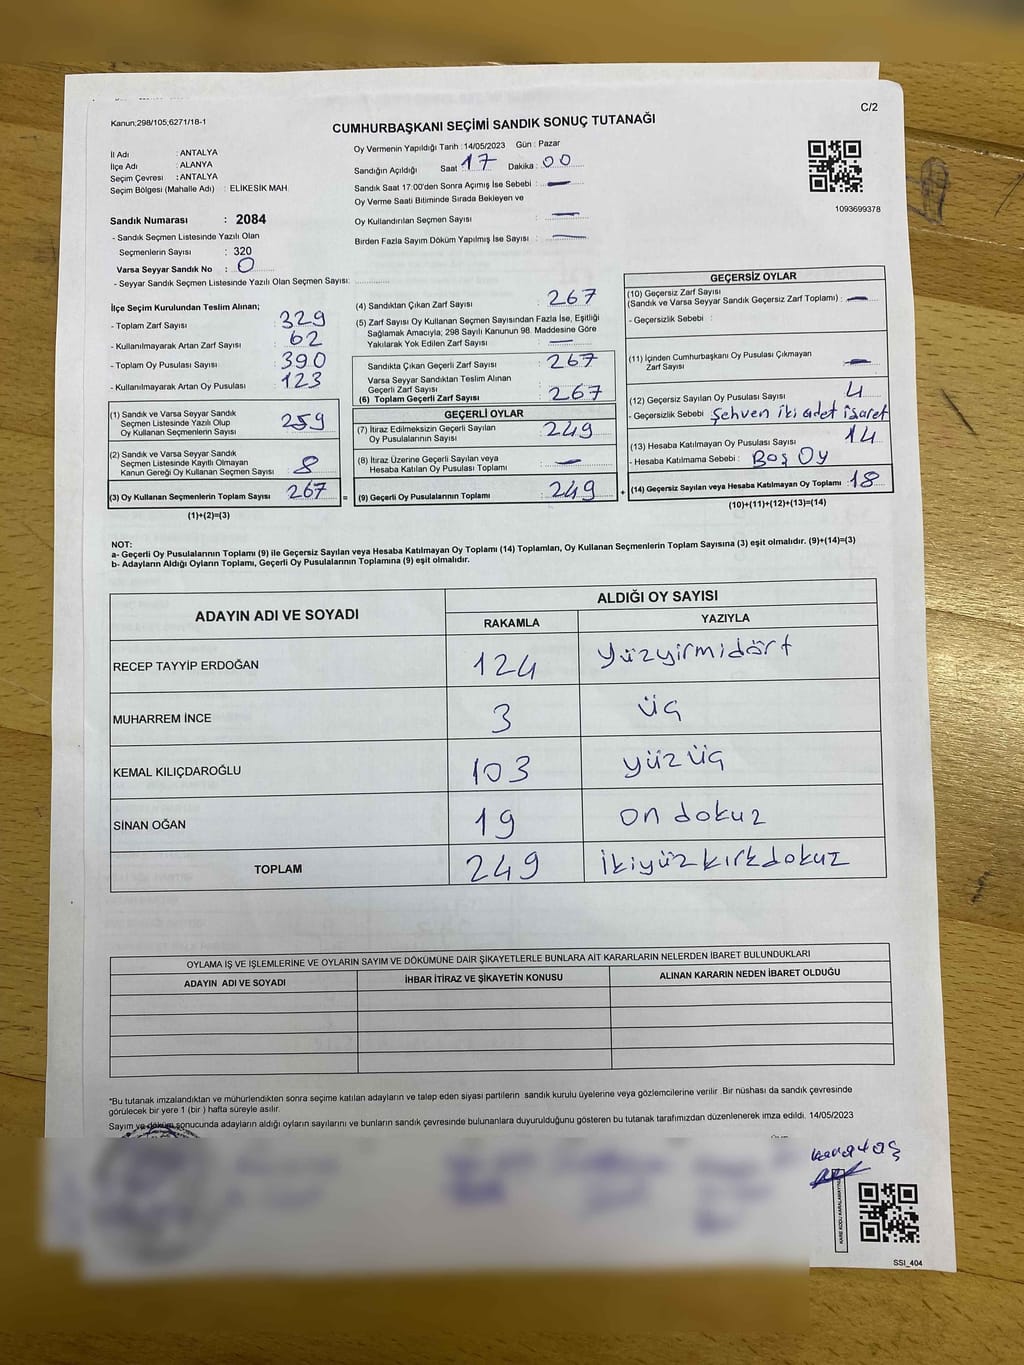 C/2
Kanun;298/105;6271/18-1
CUMHURBAŞKANI SEÇİMİ SANDIK SONUÇ TUTANAĞI
İl Adı : ANTALYA
İlçe Adı : ALANYA
Seçim Çevresi : ANTALYA
Seçim Bölgesi (Mahalle Adı) : ELİKESİK MAH.
Oy Vermenin Yapıldığı Tarih :14/05/2023 Gün : Pazar
Sandığın Açıldığı Saat 17 Dakika : 00
Sandık Saat 17:00'den Sonra Açımış İse Sebebi : —
Oy Verme Saati Bitiminde Sırada Bekleyen ve
Oy Kullandırılan Seçmen Sayısı : —
Birden Fazla Sayım Döküm Yapılmış İse Sayısı : —
1093699378
Sandık Numarası : 2084
- Sandık Seçmen Listesinde Yazılı Olan
Seçmenlerin Sayısı : 320
Varsa Seyyar Sandık No : 0
- Seyyar Sandık Seçmen Listesinde Yazılı Olan Seçmen Sayısı:
İlçe Seçim Kurulundan Teslim Alınan;
- Toplam Zarf Sayısı : 329
- Kullanılmayarak Artan Zarf Sayısı : 62
- Toplam Oy Pusulası Sayısı : 390
- Kullanılmayarak Artan Oy Pusulası : 123
(1) Sandık ve Varsa Seyyar Sandık
Seçmen Listesinde Yazılı Olup
Oy Kullanan Seçmenlerin Sayısı : 259
(2) Sandık ve Varsa Seyyar Sandık
Seçmen Listesinde Kayıtlı Olmayan
Kanun Gereği Oy Kullanan Seçmen Sayısı : 8
(3) Oy Kullanan Seçmenlerin Toplam Sayısı : 267
(1)+(2)=(3)
=
(4) Sandıktan Çıkan Zarf Sayısı : 267
(5) Zarf Sayısı Oy Kullanan Seçmen Sayısından Fazla İse, Eşitliği
Sağlamak Amacıyla; 298 Sayılı Kanunun 98. Maddesine Göre
Yakılarak Yok Edilen Zarf Sayısı : —
Sandıkta Çıkan Geçerli Zarf Sayısı : 267
Varsa Seyyar Sandıktan Teslim Alınan
Geçerli Zarf Sayısı :
(6) Toplam Geçerli Zarf Sayısı : 267
GEÇERLİ OYLAR
(7) İtiraz Edilmeksizin Geçerli Sayılan
Oy Pusulalarının Sayısı : 249
(8) İtiraz Üzerine Geçerli Sayılan veya
Hesaba Katılan Oy Pusulası Toplamı : —
(9) Geçerli Oy Pusulalarının Toplamı : 249
+
GEÇERSİZ OYLAR
(10) Geçersiz Zarf Sayısı
(Sandık ve Varsa Seyyar Sandık Geçersiz Zarf Toplamı) : —
- Geçersizlik Sebebi :
(11) İçinden Cumhurbaşkanı Oy Pusulası Çıkmayan
Zarf Sayısı : —
(12) Geçersiz Sayılan Oy Pusulası Sayısı : 4
- Geçersizlik Sebebi : Şehven iki adet işaret
(13) Hesaba Katılmayan Oy Pusulası Sayısı : 14
- Hesaba Katılmama Sebebi : Boş Oy
(14) Geçersiz Sayılan veya Hesaba Katılmayan Oy Toplamı : 18
(10)+(11)+(12)+(13)=(14)
NOT:
a- Geçerli Oy Pusulalarının Toplamı (9) ile Geçersiz Sayılan veya Hesaba Katılmayan Oy Toplamı (14) Toplamları, Oy Kullanan Seçmenlerin Toplam Sayısına (3) eşit olmalıdır. (9)+(14)=(3)
b- Adayların Aldığı Oyların Toplamı, Geçerli Oy Pusulalarının Toplamına (9) eşit olmalıdır.
ADAYIN ADI VE SOYADI
ALDIĞI OY SAYISI
RAKAMLA YAZIYLA
RECEP TAYYİP ERDOĞAN 124 yüzyirmidört
MUHARREM İNCE 3 üç
KEMAL KILIÇDAROĞLU 103 yüzüç
SİNAN OĞAN 19 on dokuz
TOPLAM 249 ikiyüzkırkdokuz
OYLAMA İŞ VE İŞLEMLERİNE VE OYLARIN SAYIM VE DÖKÜMÜNE DAİR ŞİKAYETLERLE BUNLARA AİT KARARLARIN NELERDEN İBARET BULUNDUKLARI
ADAYIN ADI VE SOYADI İHBAR İTİRAZ VE ŞİKAYETİN KONUSU ALINAN KARARIN NEDEN İBARET OLDUĞU
*Bu tutanak imzalandıktan ve mühürlendikten sonra seçime katılan adayların ve talep eden siyasi partilerin sandık kurulu üyelerine veya gözlemcilerine verilir. Bir nüshası da sandık çevresinde
görülecek bir yere 1 (bir ) hafta süreyle asılır.
Sayım ve döküm sonucunda adayların aldığı oyların sayılarını ve bunların sandık çevresinde bulunanlara duyurulduğunu gösteren bu tutanak tarafımızdan düzenlenerek imza edildi. 14/05/2023
KARE KODU KARALAMAYINIZ
SSI_404